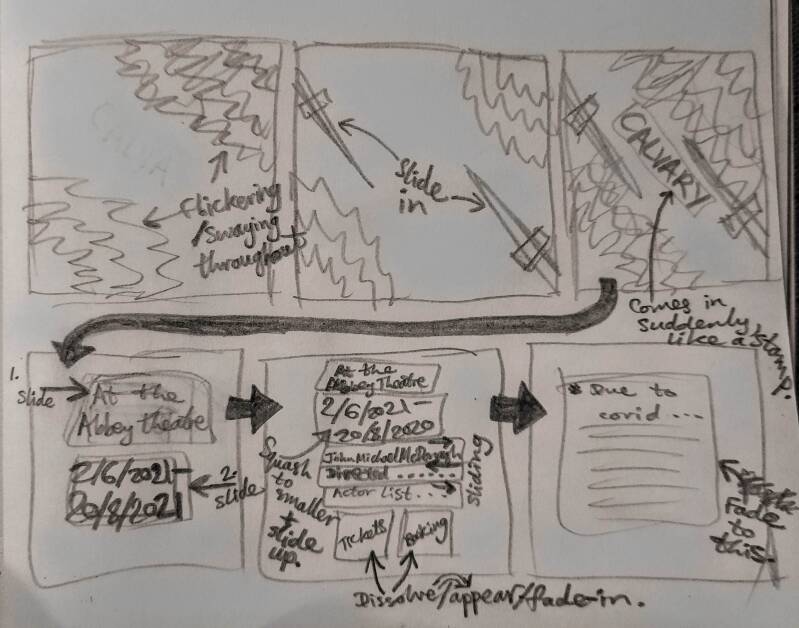 CALVA
Flickering
/Swaying
throughout
Slide
in
CALVARY
Comes in
suddenly,
like a stamp.
1.
Slide
At the
Abbey theatre
2/6/2021-
20/8/2021
2.
slide
At the
Abbey Theatre
2/6/2021-
20/8/2020
John Michael McDonagh
Directed ......
Actor List ....
Sliding
Squash
to
smaller
+
slide
up.
Tickets
Booking
Dissolve/appear/fade-in.
* Due to
covid ...
Fade
to
this.